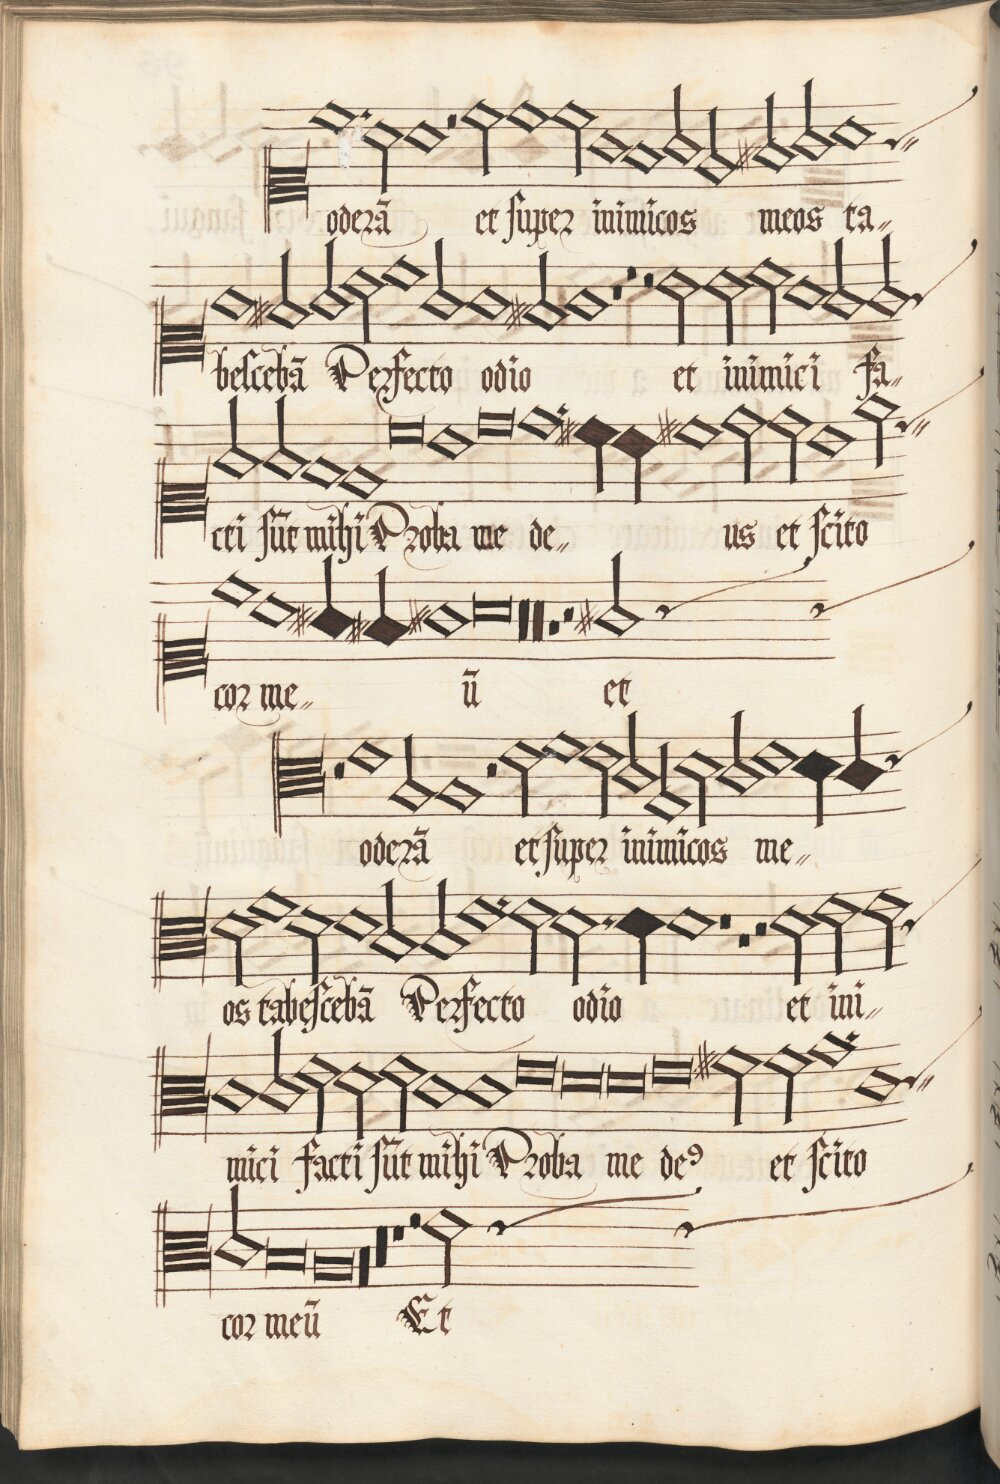 oderā et super inimicos meos ta„
bescebā Perfecto odio et inimici fa„
cti sūt mihi Proba me de„ us et scito
cor me„ ū et
oderā et super inimicos me„
os tabescebā Perfecto odio et ini„
mici facti sūt mihi Proba me de⁹ et scito
cor meū Et